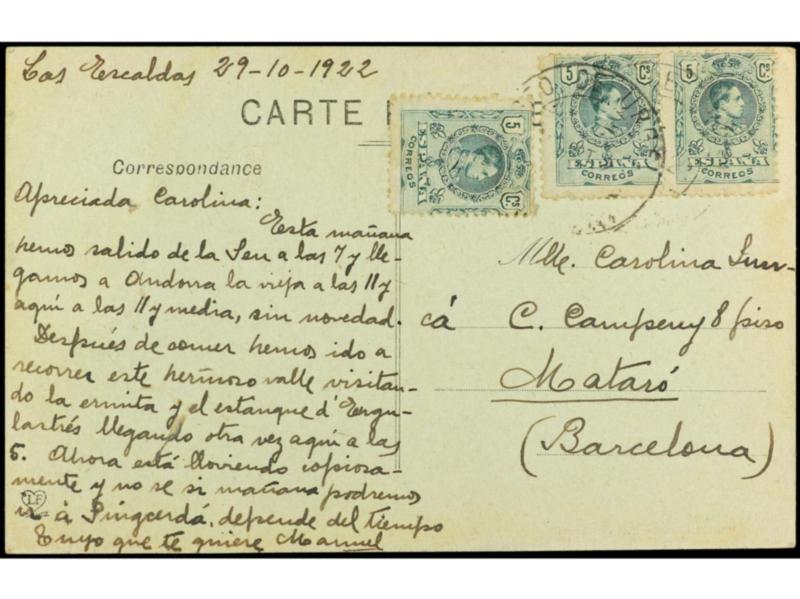 Las Escaldas 29-10-1922
CARTE
Correspondance
5 Cs
ESPAÑA
CORREOS
5 Cs
ESPAÑA
CORREOS
5 Cs
ESPAÑA
CORREOS
Apreciada Carolina:
Esta mañana
hemos salido de la Seu a las 7 y lle-
gamos a Andorra la vieja a las 11 y
aquí a las 11 y media, sin novedad.
Después de comer hemos ido a
recorrer este hermoso valle visitan-
do la ermita y el estanque d'Engu-
lastrés llegando otra vez aquí a las
5. Ahora está lloviendo copiosa-
mente y no se si mañana podremos
ir à Puigcerdá, depende del tiempo
Tuyo que te quiere Manuel
LF
Mlle. Carolina
cá C. Campeny 8 piso
Mataró
(Barcelona)